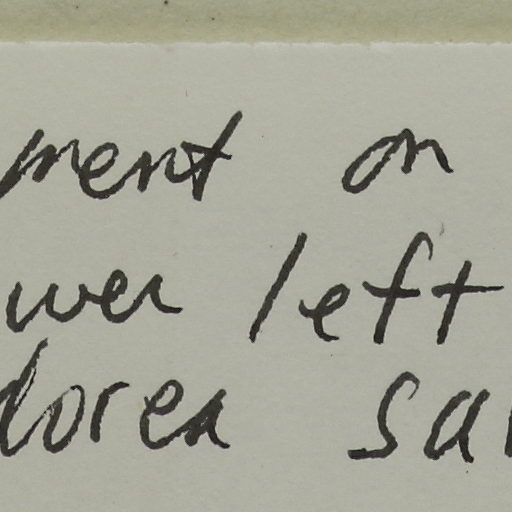 ment on
wer left
lorea sa